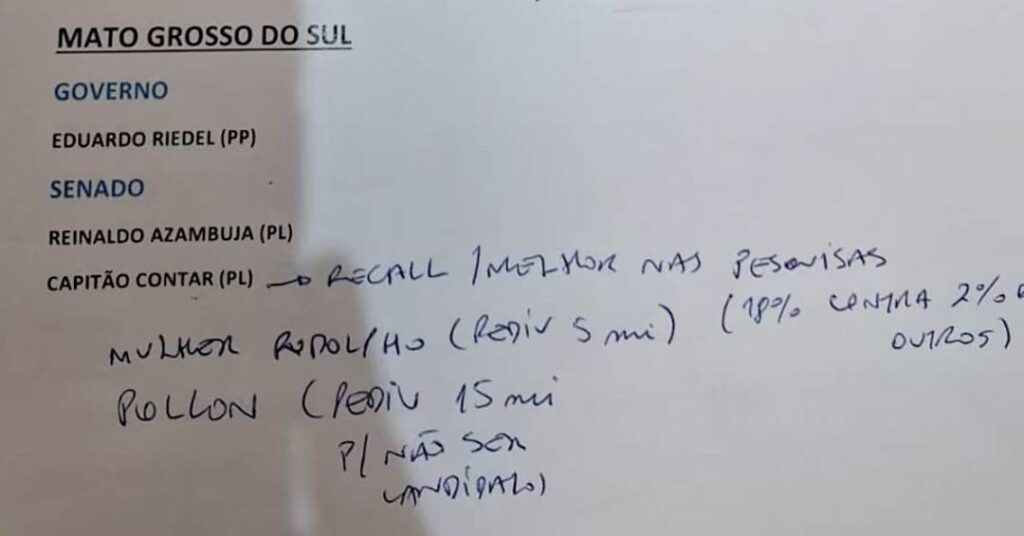 MATO GROSSO DO SUL
GOVERNO
EDUARDO RIEDEL (PP)
SENADO
REINALDO AZAMBUJA (PL)
CAPITÃO CONTAR (PL) → RECALL / MELHOR NAS PESQUISAS
(18% CONTRA 2%
OUTROS)
MULHER RODOLFHO (PEDIU 5 mi)
POLLON (PEDIU 15 mi
P/ NÃO SER
CANDIDATO)